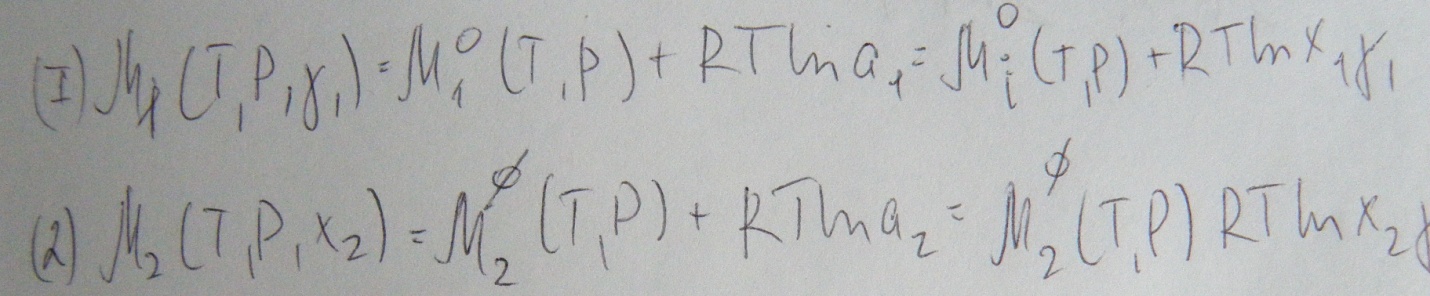 (I) μ₁(T,P,γ₁) = μ₁⁰(T,P) + RT ln a₁ = μᵢ⁰(T,P) + RT ln x₁γ₁
(2) μ₂(T,P,x₂) = μ₂^ϕ(T,P) + RT ln a₂ = μ₂^ϕ(T,P) RT ln x₂